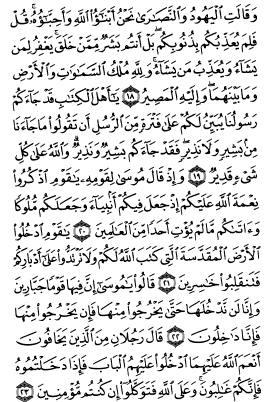 وَقَالَتِ ٱلْيَهُودُ وَٱلنَّصَٰرَىٰ نَحْنُ أَبْنَٰٓؤُا۟ ٱللَّهِ وَأَحِبَّٰٓؤُهُۥ ۚ قُلْ
فَلِمَ يُعَذِّبُكُم بِذُنُوبِكُم ۖ بَلْ أَنتُم بَشَرٌ مِّمَّنْ خَلَقَ ۚ يَغْفِرُ لِمَن
يَشَآءُ وَيُعَذِّبُ مَن يَشَآءُ ۚ وَلِلَّهِ مُلْكُ ٱلسَّمَٰوَٰتِ وَٱلْأَرْضِ
وَمَا بَيْنَهُمَا ۖ وَإِلَيْهِ ٱلْمَصِيرُ ١٨ يَٰٓأَهْلَ ٱلْكِتَٰبِ قَدْ جَآءَكُمْ
رَسُولُنَا يُبَيِّنُ لَكُمْ عَلَىٰ فَتْرَةٍ مِّنَ ٱلرُّسُلِ أَن تَقُولُوا۟ مَا جَآءَنَا
مِنۢ بَشِيرٍ وَلَا نَذِيرٍ ۖ فَقَدْ جَآءَكُم بَشِيرٌ وَنَذِيرٌ ۗ وَٱللَّهُ عَلَىٰ كُلِّ
شَىْءٍ قَدِيرٌ ١٩ وَإِذْ قَالَ مُوسَىٰ لِقَوْمِهِۦ يَٰقَوْمِ ٱذْكُرُوا۟
نِعْمَةَ ٱللَّهِ عَلَيْكُمْ إِذْ جَعَلَ فِيكُمْ أَنۢبِيَآءَ وَجَعَلَكُم مُّلُوكًا
وَءَاتَىٰكُم مَّا لَمْ يُؤْتِ أَحَدًا مِّنَ ٱلْعَٰلَمِينَ ٢٠ يَٰقَوْمِ ٱدْخُلُوا۟
ٱلْأَرْضَ ٱلْمُقَدَّسَةَ ٱلَّتِى كَتَبَ ٱللَّهُ لَكُمْ وَلَا تَرْتَدُّوا۟ عَلَىٰٓ أَدْبَارِكُمْ
فَتَنقَلِبُوا۟ خَٰسِرِينَ ٢١ قَالُوا۟ يَٰمُوسَىٰٓ إِنَّ فِيهَا قَوْمًا جَبَّارِينَ
وَإِنَّا لَن نَّدْخُلَهَا حَتَّىٰ يَخْرُجُوا۟ مِنْهَا فَإِن يَخْرُجُوا۟ مِنْهَا
فَإِنَّا دَٰخِلُونَ ٢٢ قَالَ رَجُلَانِ مِنَ ٱلَّذِينَ يَخَافُونَ
أَنْعَمَ ٱللَّهُ عَلَيْهِمَا ٱدْخُلُوا۟ عَلَيْهِمُ ٱلْبَابَ فَإِذَا دَخَلْتُمُوهُ
فَإِنَّكُمْ غَٰلِبُونَ ۚ وَعَلَى ٱللَّهِ فَتَوَكَّلُوٓا۟ إِن كُنتُم مُّؤْمِنِينَ ٢٣